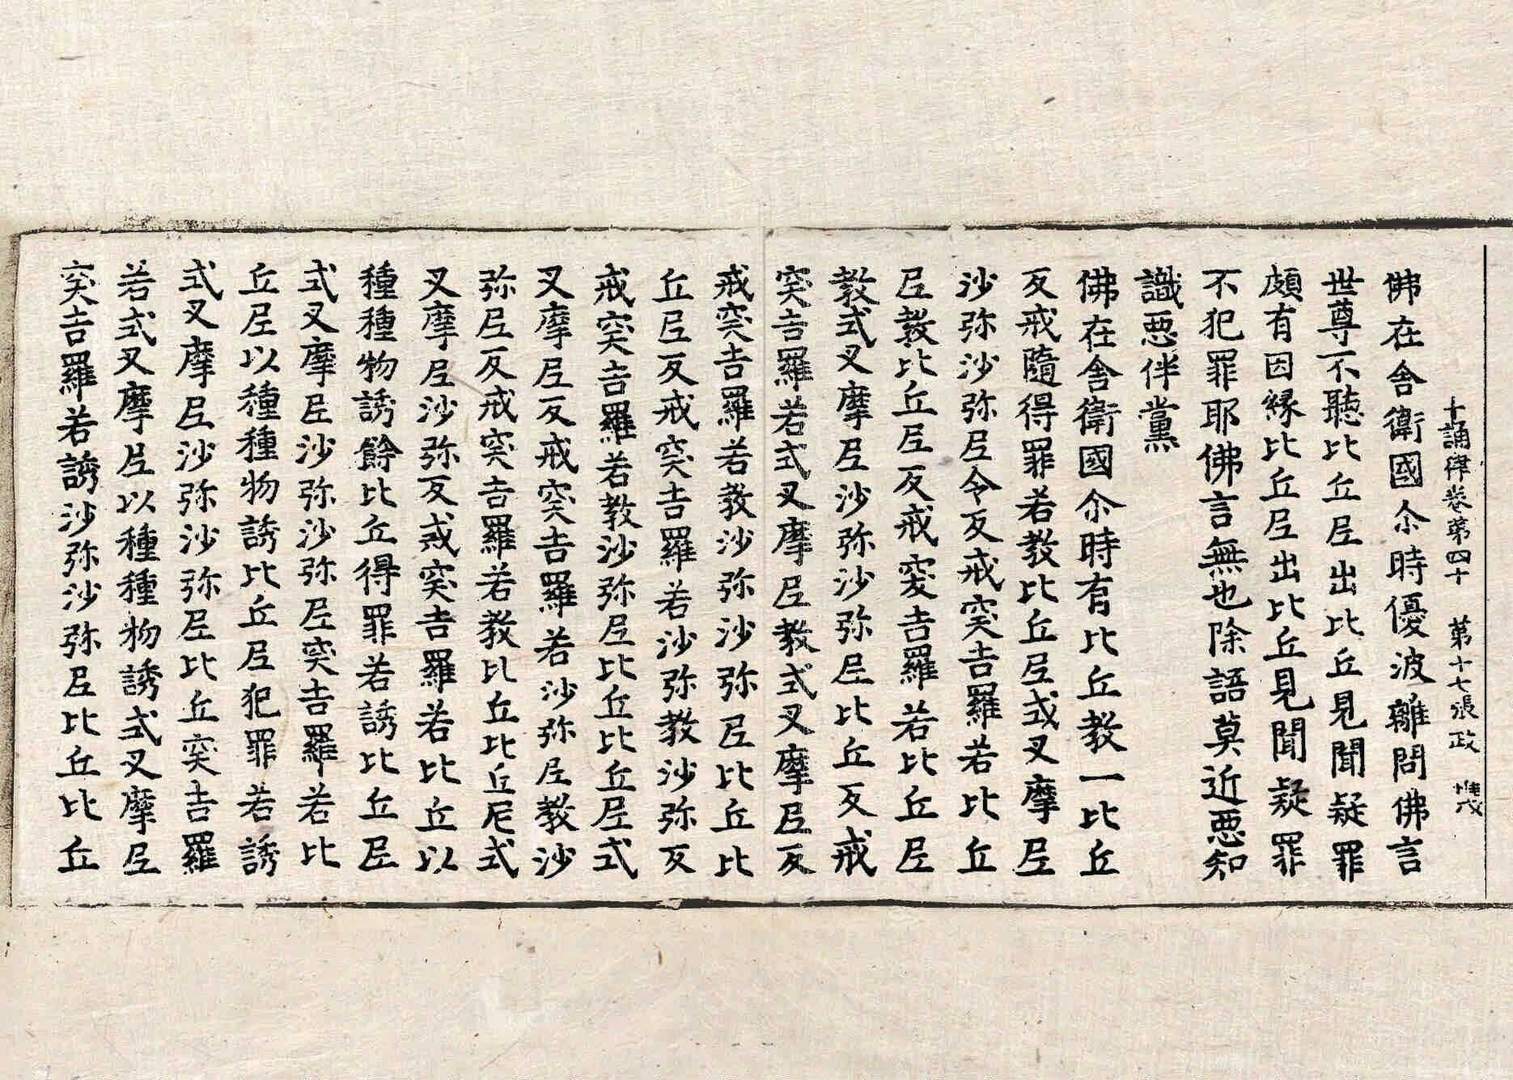 十誦律卷第四十　第十七張政
佛在舍衛國尒時優波離問佛言
世尊不聽比丘𡰱出比丘見聞疑罪
頗有因緣比丘𡰱出比丘見聞疑罪
不犯罪耶佛言無也除語莫近悪知
識悪伴黨
佛在舍衛國尒時有比丘教一比丘
反戒隨得罪若教比丘𡰱或叉摩𡰱
沙弥沙弥𡰱令反戒突吉羅若比丘
𡰱教比丘𡰱反戒突吉羅若比丘𡰱
教式叉摩𡰱沙弥沙弥𡰱比丘反戒
突吉羅若式叉摩𡰱教式叉摩𡰱反
戒突吉羅若教沙弥沙弥𡰱比丘比
丘𡰱反戒突吉羅若沙弥教沙弥反
戒突吉羅若教沙弥𡰱比丘比丘𡰱式
叉摩𡰱反戒突吉羅若沙弥𡰱教沙
弥𡰱反戒突吉羅若教比丘比丘尼式
叉摩𡰱沙弥反戒突吉羅若比丘以
種種物誘餘比丘得罪若誘比丘𡰱
式叉摩𡰱沙弥沙弥𡰱突吉羅若比
丘𡰱以種種物誘比丘𡰱犯罪若誘
式叉摩𡰱沙弥沙弥𡰱比丘突吉羅
若式叉摩𡰱以種種物誘式叉摩𡰱
突吉羅若誘沙弥沙弥𡰱比丘比丘